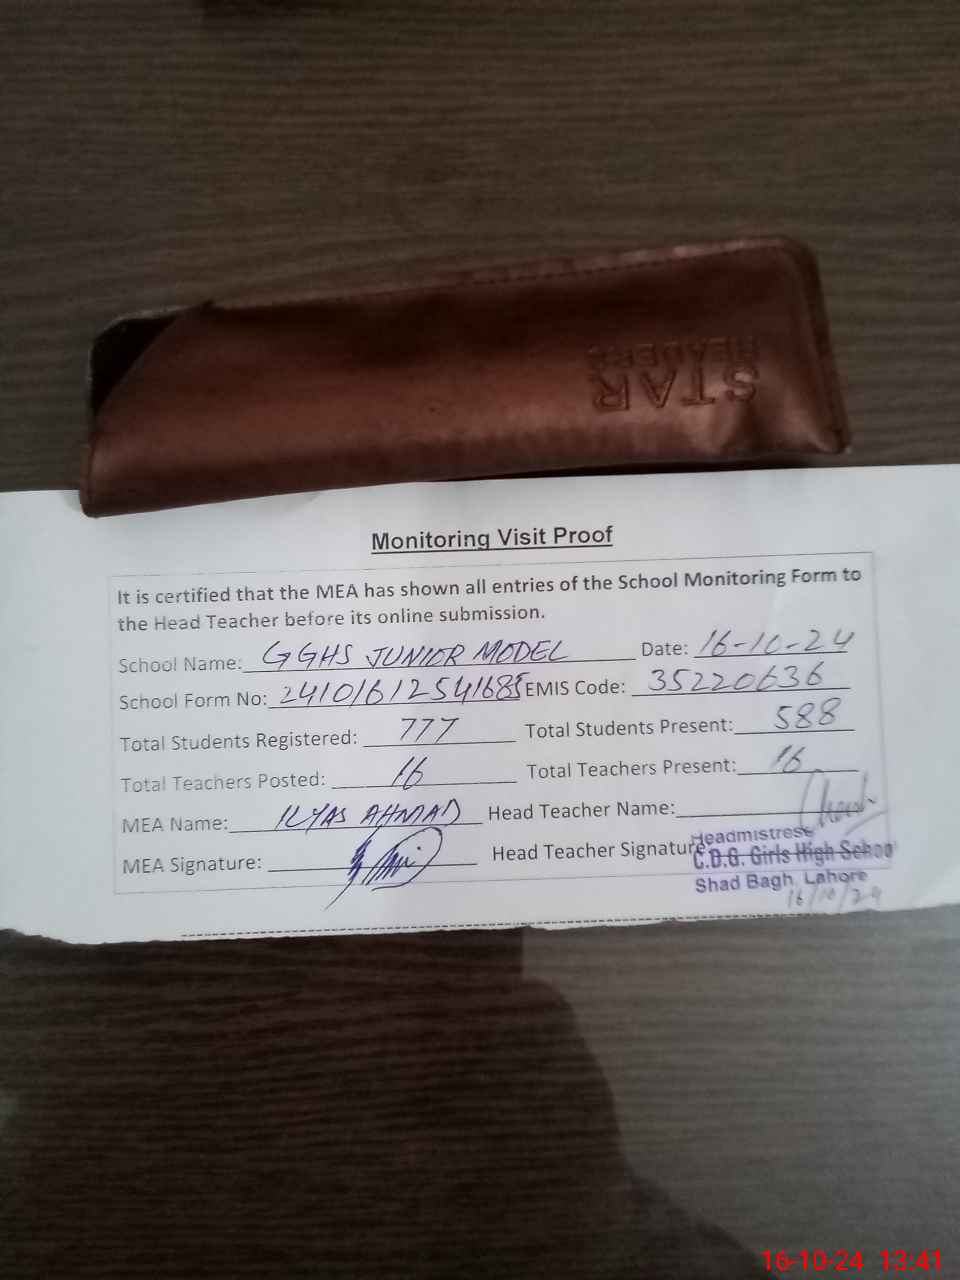 STAR
READERS
Monitoring Visit Proof
It is certified that the MEA has shown all entries of the School Monitoring Form to
the Head Teacher before its online submission.
School Name: GGHS JUNIOR MODEL Date: 16-10-24
School Form No: 24101612541685 EMIS Code: 35220636
Total Students Registered: 777 Total Students Present: 588
Total Teachers Posted: 16 Total Teachers Present: 16
MEA Name: ILYAS AHMAD Head Teacher Name:
MEA Signature: Head Teacher Signature
Headmistress
C.D.G. Girls High School
Shad Bagh, Lahore
16/10/24
16-10-24 13:41